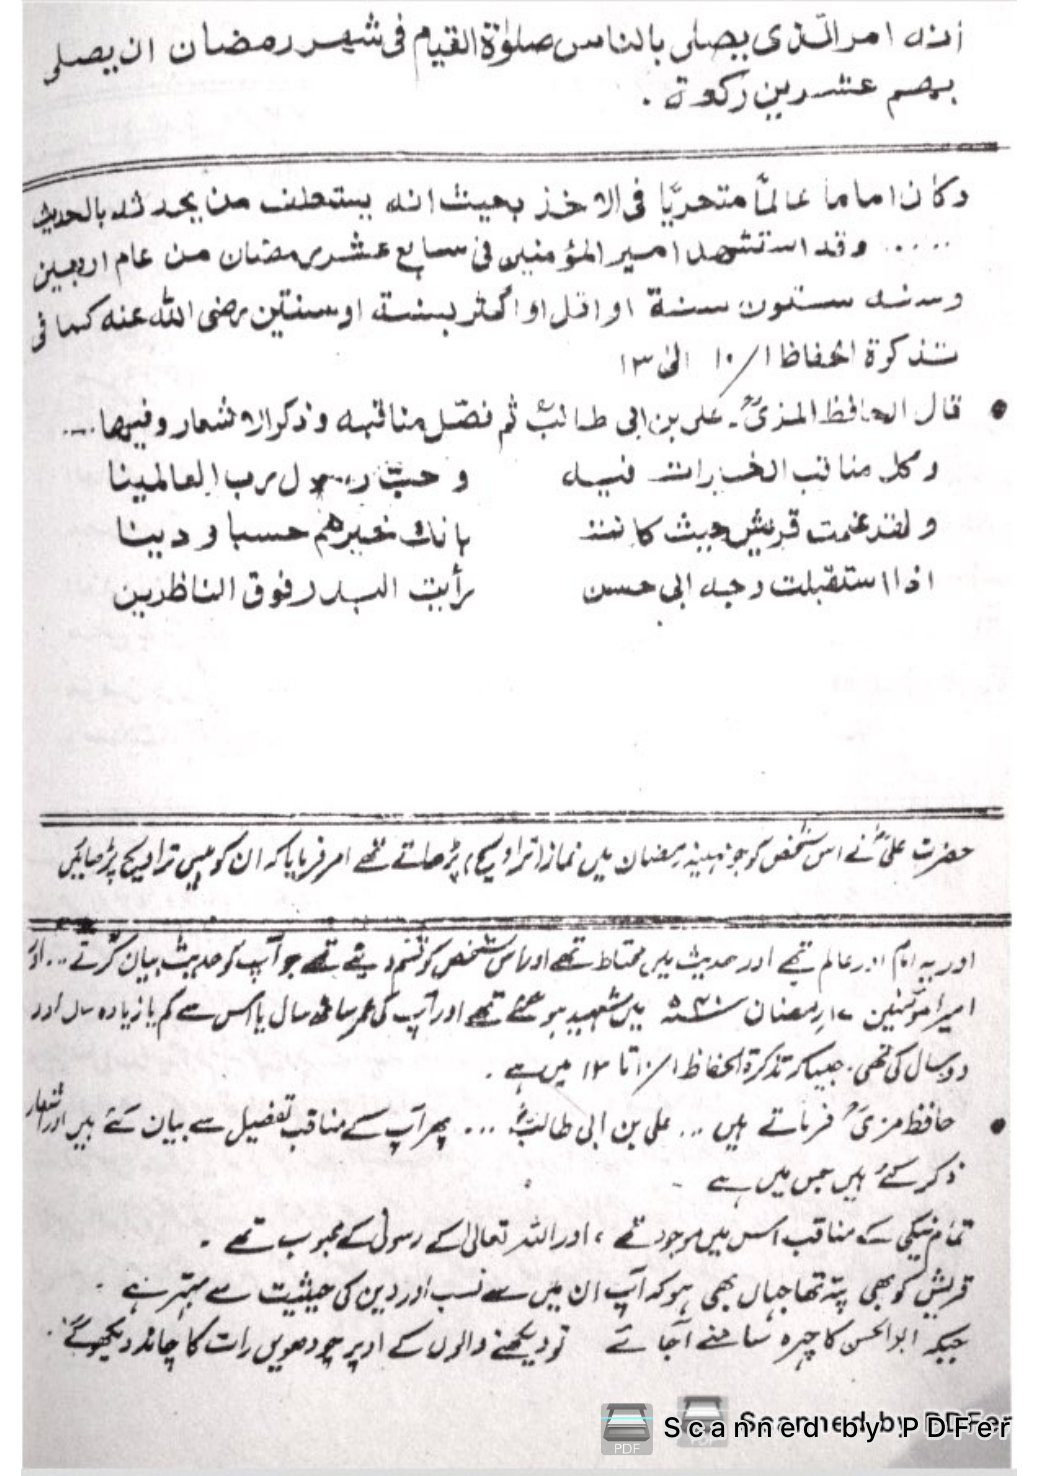 أنه امر الذی یصلی بالناس صلوٰة القیام فی شهر رمضان ان یصلی
بهم عشرین رکوة .
وکان اماما عالمًا متحریًا فی الاخذ بحیث انه یستحلف من یحدثه بالحدیث
..... وقد استشهد امیر المؤمنین فی سابع عشر رمضان من عام اربعین
وسنه ستون سنة او اقل او اکثر بسنة او سنتین رضی الله عنه کما فی
تذکرة الحفاظ ۱/۱۰ الی ۱۳
● قال الحافظ المزیؒ۔ علی بن ابی طالبؓ ثم فصّل مناقبه وذکر الاشعار وفیها....
وکل مناقب الخیرات فیه وحبّ رسول رب العالمینا
ولقد علمت قریش حیث کانت بانک خیرهم حسبا و دینا
اذا استقبلت وجه ابی حسن رأیت البدر فوق الناظرین
حضرت علیؓ نے اس شخص کو جو مہینہ رمضان میں نماز (تراویح) پڑھاتے تھے امر فرمایا کہ ان کو بیس تراویح پڑھائیں
اور یہ امام اور عالم تھے اور حدیث میں محتاط تھے اور اس شخص کو قسم دیتے تھے جو آپ کو حدیث بیان کرتے... اور
امیر المومنین ۱۷ رمضان ۴۰ھ میں شہید ہو گئے تھے اور آپ کی عمر ساٹھ سال یا اس سے کم یا زیادہ سال اور
دو سال کی تھی۔ جیسا کہ تذکرة الحفاظ ۱/۱۰ تا ۱۳ میں ہے .
● حافظ مزیؒ فرماتے ہیں ... علی بن ابی طالبؓ ... پھر آپ کے مناقب تفصیل سے بیان کئے ہیں اور اشعار
ذکر کئے ہیں جس میں ہے
تمام نیکی کے مناقب اس میں موجود تھے ، اور اللہ تعالیٰ کے رسول کے محبوب تھے .
قریش کو بھی پتہ تھا جہاں بھی ہو کہ آپ ان میں سے نسب اور دین کی حیثیت سے بہتر ہے .
جبکہ ابو الحسن کا چہرہ سامنے آجائے تو دیکھنے والوں کے اوپر چودھویں رات کا چاند دیکھو گے .
Scanned by PDFer
Scanned by PDFer